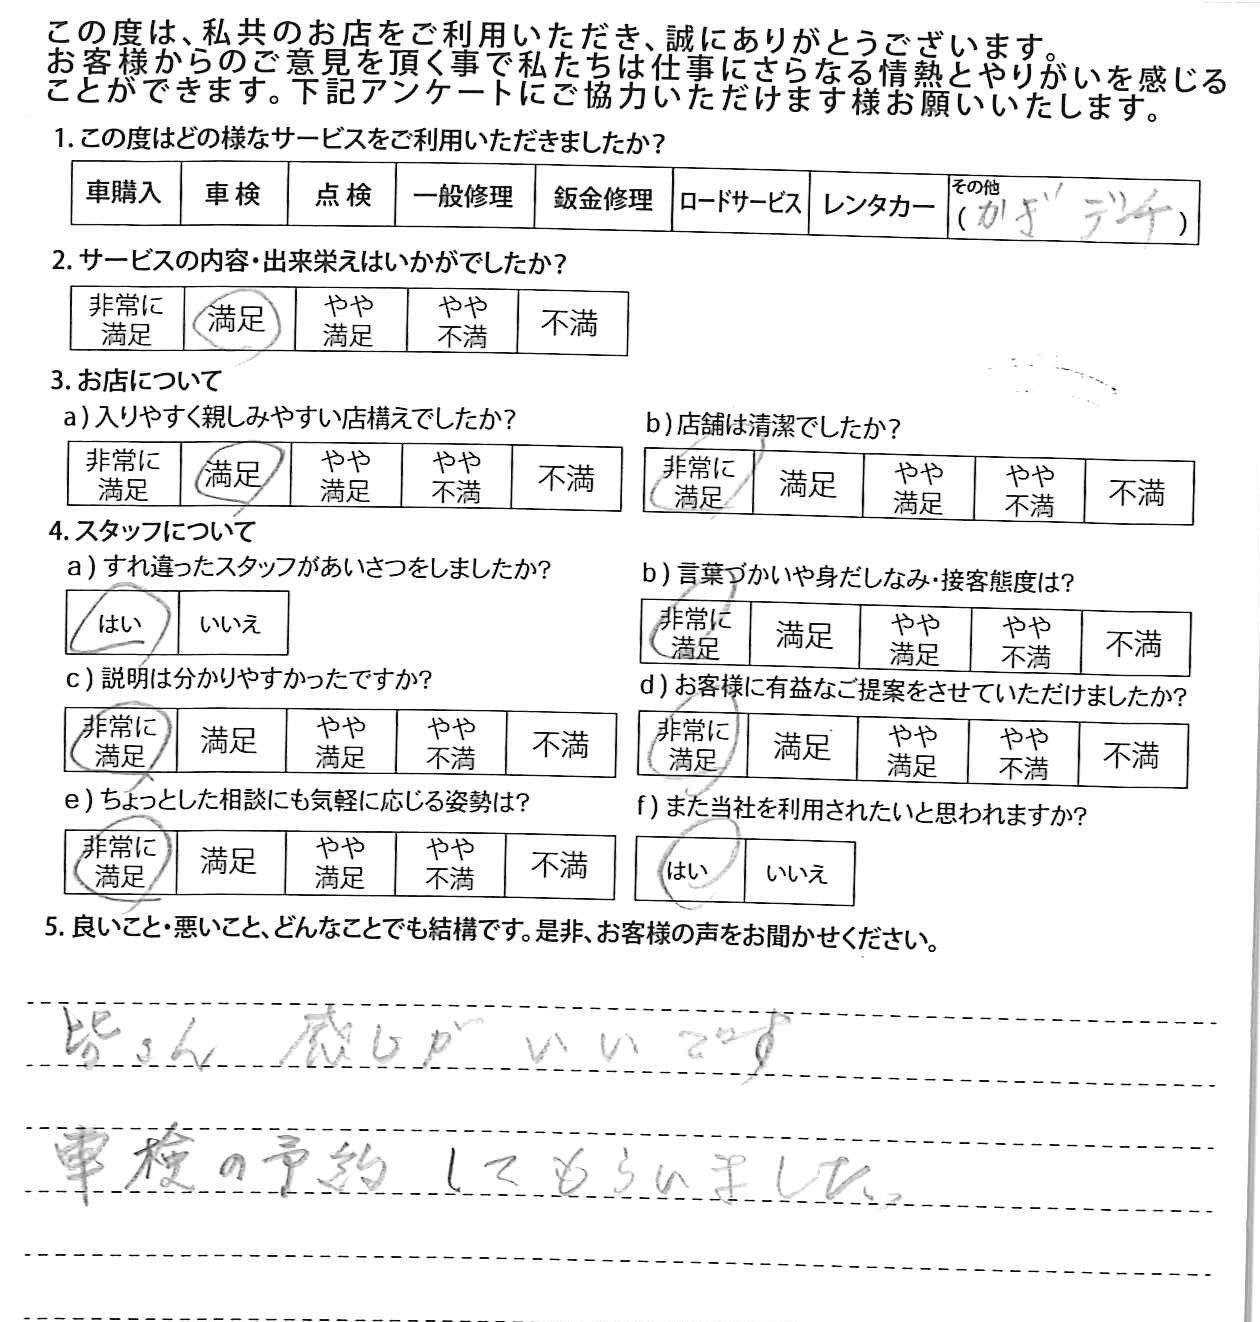 この度は、私共のお店をご利用いただき、誠にありがとうございます。
お客様からのご意見を頂く事で私たちは仕事にさらなる情熱とやりがいを感じる
ことができます。下記アンケートにご協力いただけます様お願いいたします。
1. この度はどの様なサービスをご利用いただきましたか?
車購入 車検 点検 一般修理 鈑金修理 ロードサービス レンタカー その他
(かぎ デンチ)
2. サービスの内容・出来栄えはいかがでしたか?
非常に満足 満足 やや満足 やや不満 不満
3. お店について
a) 入りやすく親しみやすい店構えでしたか?
非常に満足 満足 やや満足 やや不満 不満
b) 店舗は清潔でしたか?
非常に満足 満足 やや満足 やや不満 不満
4. スタッフについて
a) すれ違ったスタッフがあいさつをしましたか?
はい いいえ
b) 言葉づかいや身だしなみ・接客態度は?
非常に満足 満足 やや満足 やや不満 不満
c) 説明は分かりやすかったですか?
非常に満足 満足 やや満足 やや不満 不満
d) お客様に有益なご提案をさせていただけましたか?
非常に満足 満足 やや満足 やや不満 不満
e) ちょっとした相談にも気軽に応じる姿勢は?
非常に満足 満足 やや満足 やや不満 不満
f) また当社を利用されたいと思われますか?
はい いいえ
5. 良いこと・悪いこと、どんなことでも結構です。是非、お客様の声をお聞かせください。
皆さん 感じがいいです
車検の予約してもらいました。